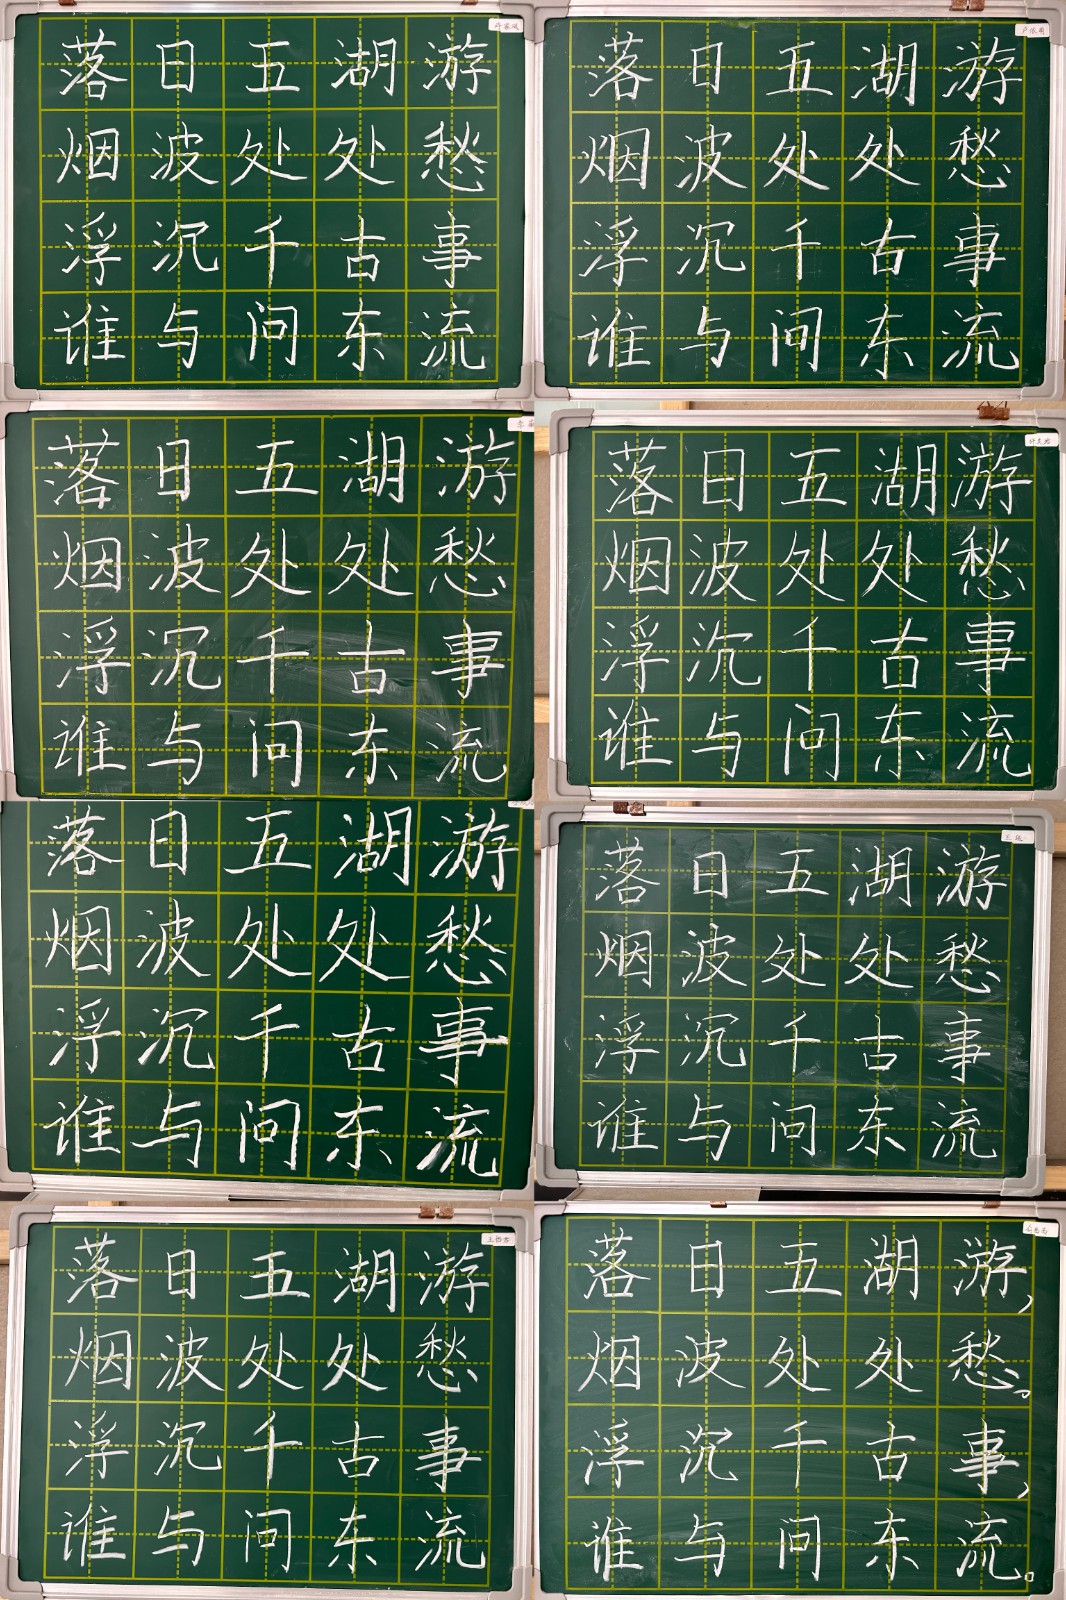 落日五湖游
烟波处处愁
浮沉千古事
谁与问东流
落日五湖游
烟波处处愁
浮沉千古事
谁与问东流
落日五湖游
烟波处处愁
浮沉千古事
谁与问东流
落日五湖游
烟波处处愁
浮沉千古事
谁与问东流
落日五湖游
烟波处处愁
浮沉千古事
谁与问东流
落日五湖游
烟波处处愁
浮沉千古事
谁与问东流
落日五湖游
烟波处处愁
浮沉千古事
谁与问东流
落日五湖游，
烟波处处愁。
浮沉千古事，
谁与问东流。